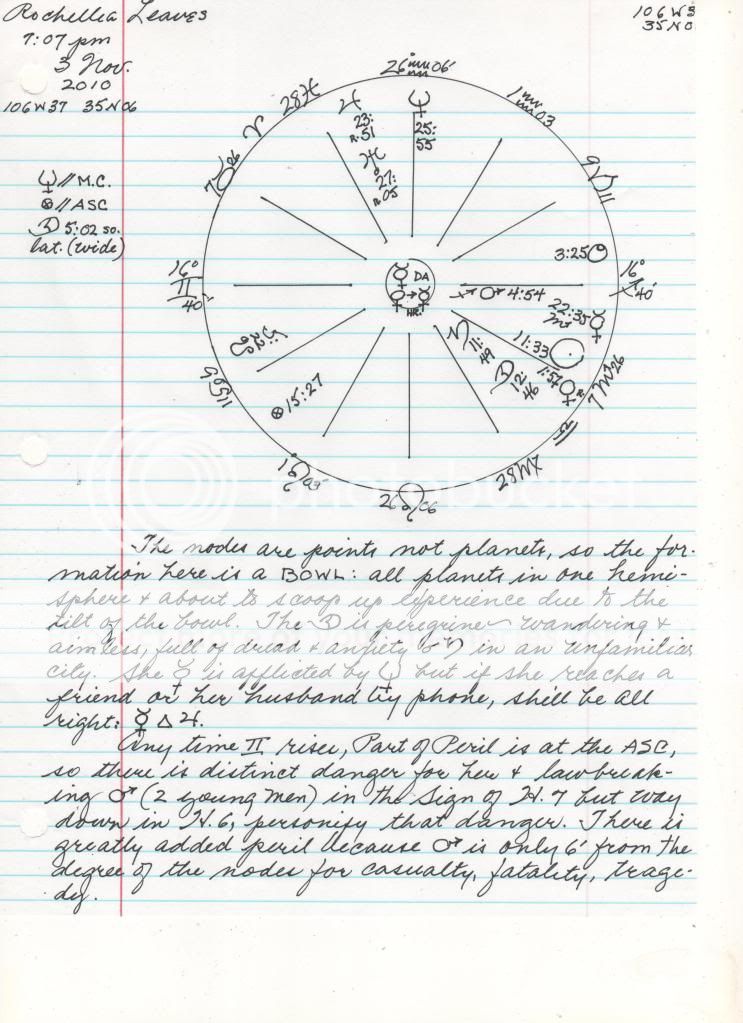 Rochellia Leaves
7:07 pm
3 Nov.
2010
106W37 35N06
106W3
35N0
☿ // M.C.
⊗ // ASC
☽ 5:02 so.
lat. (wide)
26 ♒ 06'
1 ♒ 03
9 ♑ 11
16° ♐ 40'
7 ♏ 26
♎
28 ♍
26 ♌ 06
1 ♌ 03
11 ♋
16° ♊ 40
7 ♉ 26
♈
28 ♓
♃ 23: R. 51
♅ 27: R. 05
♆ 25: 55
3:25
♐ ♂ 4:54
22:35 ♏ ☿
11:33 ☉
1:57 ♀ R
♄ 11: 49
☽ 12: 46
⊗ 15:27
DA
HR.
The nodes are points not planets, so the for-
mation here is a BOWL: all planets in one hemi-
sphere & about to scoop up experience due to the
tilt of the bowl. The ☽ is peregrine – wandering &
aimless, full of dread & anxiety ☌ ♄ in an unfamiliar
city. She ☿ is afflicted by ♆ but if she reaches a
friend or her husband by phone, she'll be all
right: ☿ △ ♃.
Any time ♊ rises, Part of Peril is at the ASC,
so there is distinct danger for her & lawbreak-
ing ♂ (2 young men) in the Sign of H. 7 but way
down in H. 6, personify that danger. There is
greatly added peril because ♂ is only 6' from the
degree of the nodes for casualty, fatality, trage-
dy.
photobucket